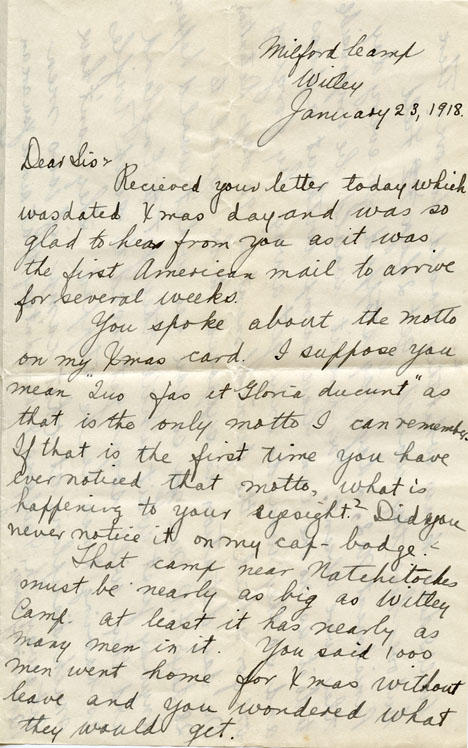 Milford Camp
Witley
January 23, 1918.
Dear Sis:-
Recieved your letter today which
was dated Xmas day and was so
glad to hear from you as it was
the first American mail to arrive
for several weeks.
You spoke about the motto
on my Xmas card. I suppose you
mean "Quo fas et Gloria ducunt" as
that is the only motto I can remember.
If that is the first time you have
ever noticed that motto, what is
happening to your eyesight? Did you
never notice it on my cap-badge?
That camp near Natchitoches
must be nearly as big as Witley
Camp. at least it has nearly as
many men in it. You said 1000
men went home for Xmas without
leave and you wondered what
they would get.